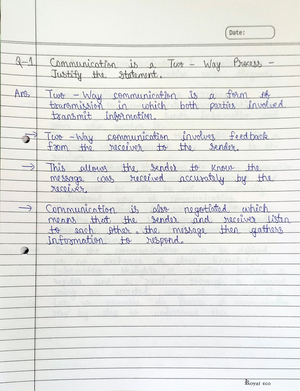 Date:
Q-1 Communication is a Two - Way Process -
Justify the statement.
Ans Two - Way communication is a form of
transmission in which both parties involved
transmit information.
→ Two - Way communication involves feedback
from the receiver to the sender.
→ This allows the sender to know the
message was received accurately by the
receiver.
→ Communication is also negotiated which
means that the sender and receiver listen
to each other, the message then gathers
information to respond.
Royal eco